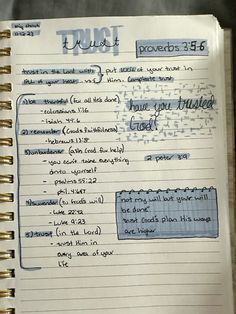 TRUST
trust
proverbs 3:5-6
trust in the Lord with all of your heart vs5
put all of your trust in Him. Complete trust
1) be thankful (for all He's done)
- colossians 1:16
- Isaiah 44:6
2) remember (God's faithfulness)
- hebrews 13:8
3) unburdener (ask God for help)
- you can't take everything
onto yourself
- psalms 55:22
- phil. 4:6&7
4) surrender (to God's will)
- Luke 22:42
- Luke 9:23
5) trust (in the Lord)
- trust Him in
every area of your
life
have you trusted
God?
2 peter 3:9
not my will but your will
be done
trust God's plan His ways
are higher